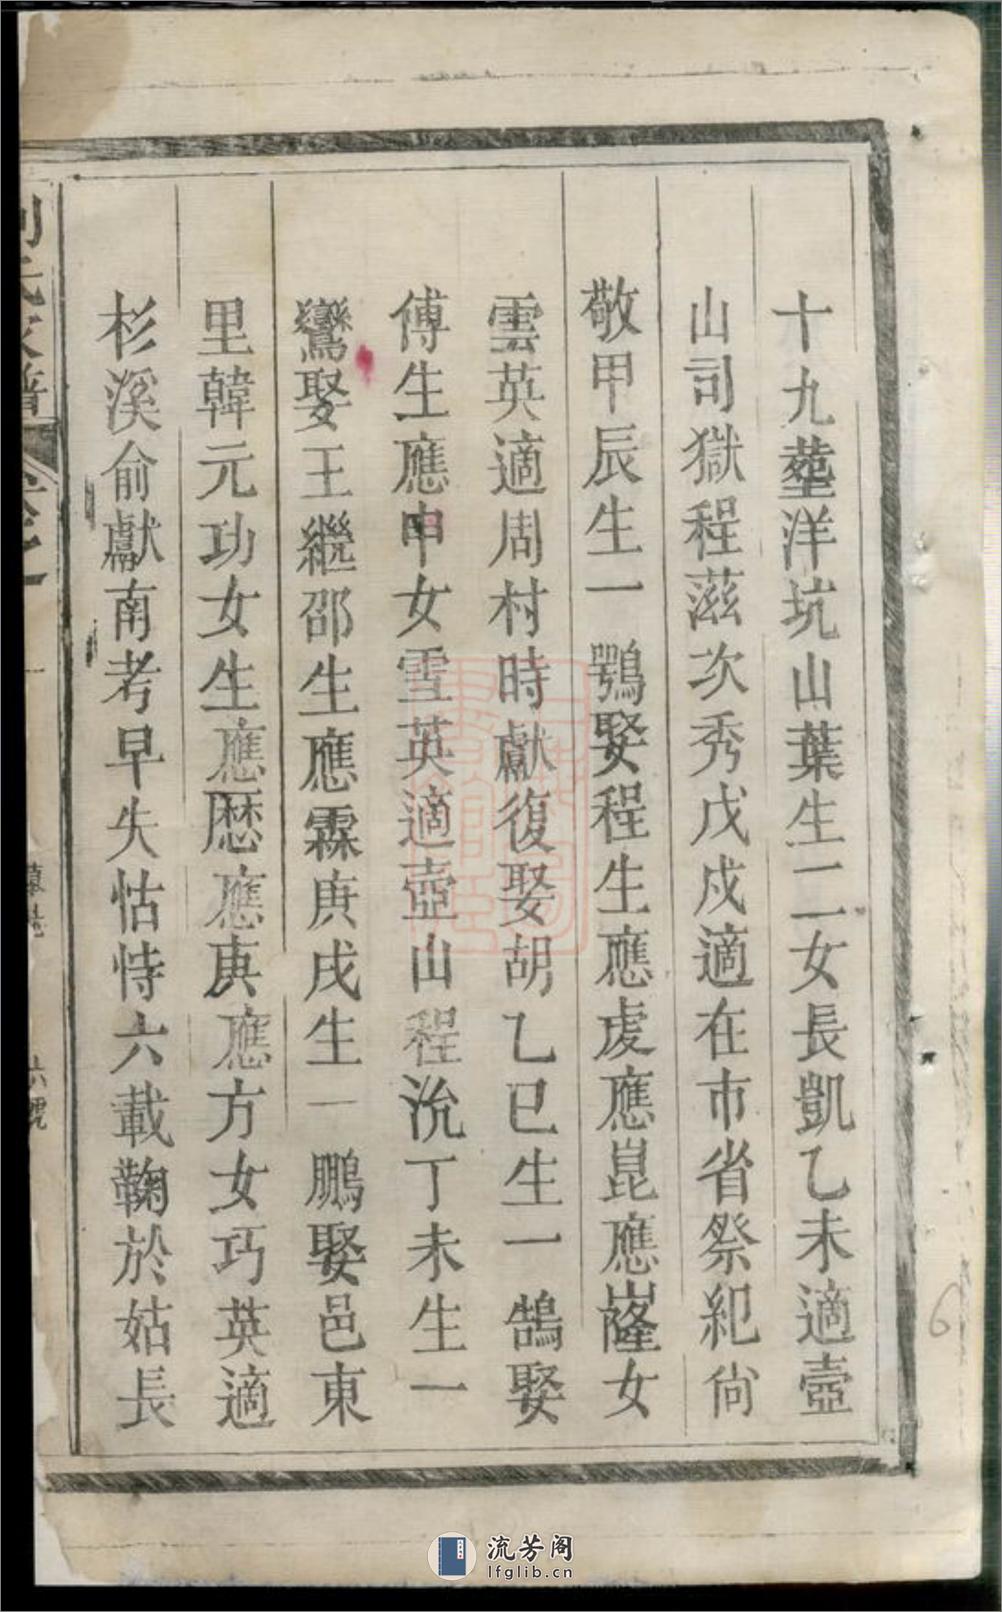 十九塟洋坑山葉生二女長凱乙未適壺
山司獄程滋次秀戊戍適在市省祭紀尙
敬甲辰生一鶚娶程生應虔應崑應嶐女
雲英適周村時獻復娶胡乙巳生一鵠娶
傅生應申女雪英適壺山程沇丁未生一
鸞娶王繼邵生應霖庚戌生一鵬娶邑東
里韓元功女生應歷應庚應方女巧英適
杉溪俞獻南考早失怙恃六載鞠於姑長
氏家譜
六號
流芳阁
lfglib.cn
6